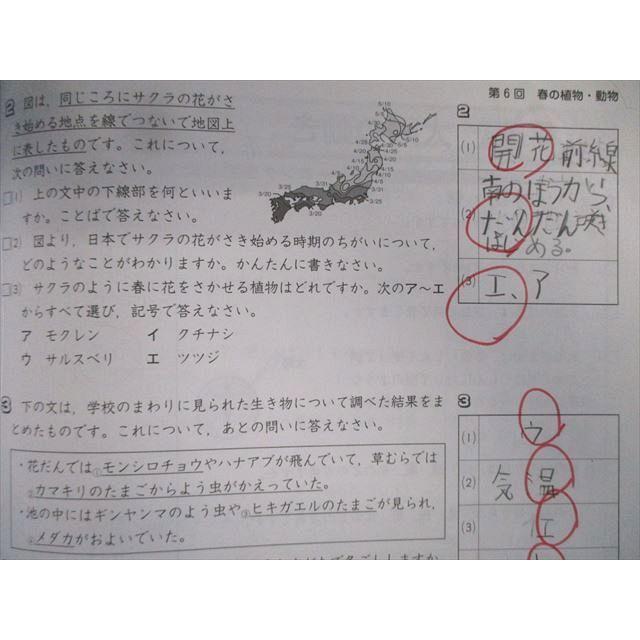 第6回 春の植物・動物
2 図は，同じころにサクラの花がさ
き始める地点を線でつないで地図上
に表したものです。これについて，
次の問いに答えなさい。
(1) 上の文中の下線部を何といいま
すか。ことばで答えなさい。
(2) 図より，日本でサクラの花がさき始める時期のちがいについて，
どのようなことがわかりますか。かんたんに書きなさい。
(3) サクラのように春に花をさかせる植物はどれですか。次のア〜エ
からすべて選び，記号で答えなさい。
ア モクレン イ クチナシ
ウ サルスベリ エ ツツジ
3 下の文は，学校のまわりに見られた生き物について調べた結果をま
とめたものです。これについて，あとの問いに答えなさい。
・花だんでは①モンシロチョウやハナアブが飛んでいて，草むらでは
②カマキリのたまごからよう虫がかえっていた。
・池の中にはギンヤンマのよう虫や③ヒキガエルのたまごが見られ，
④メダカがおよいでいた。
2
(1) 開花前線
(2) 南のほうから、
だんだん咲き
はじめる。
(3) エ、ア
3
(1) ウ
(2) 気温
(3) エ
5/10
4/30
4/25
4/20
3/31
3/25
3/20